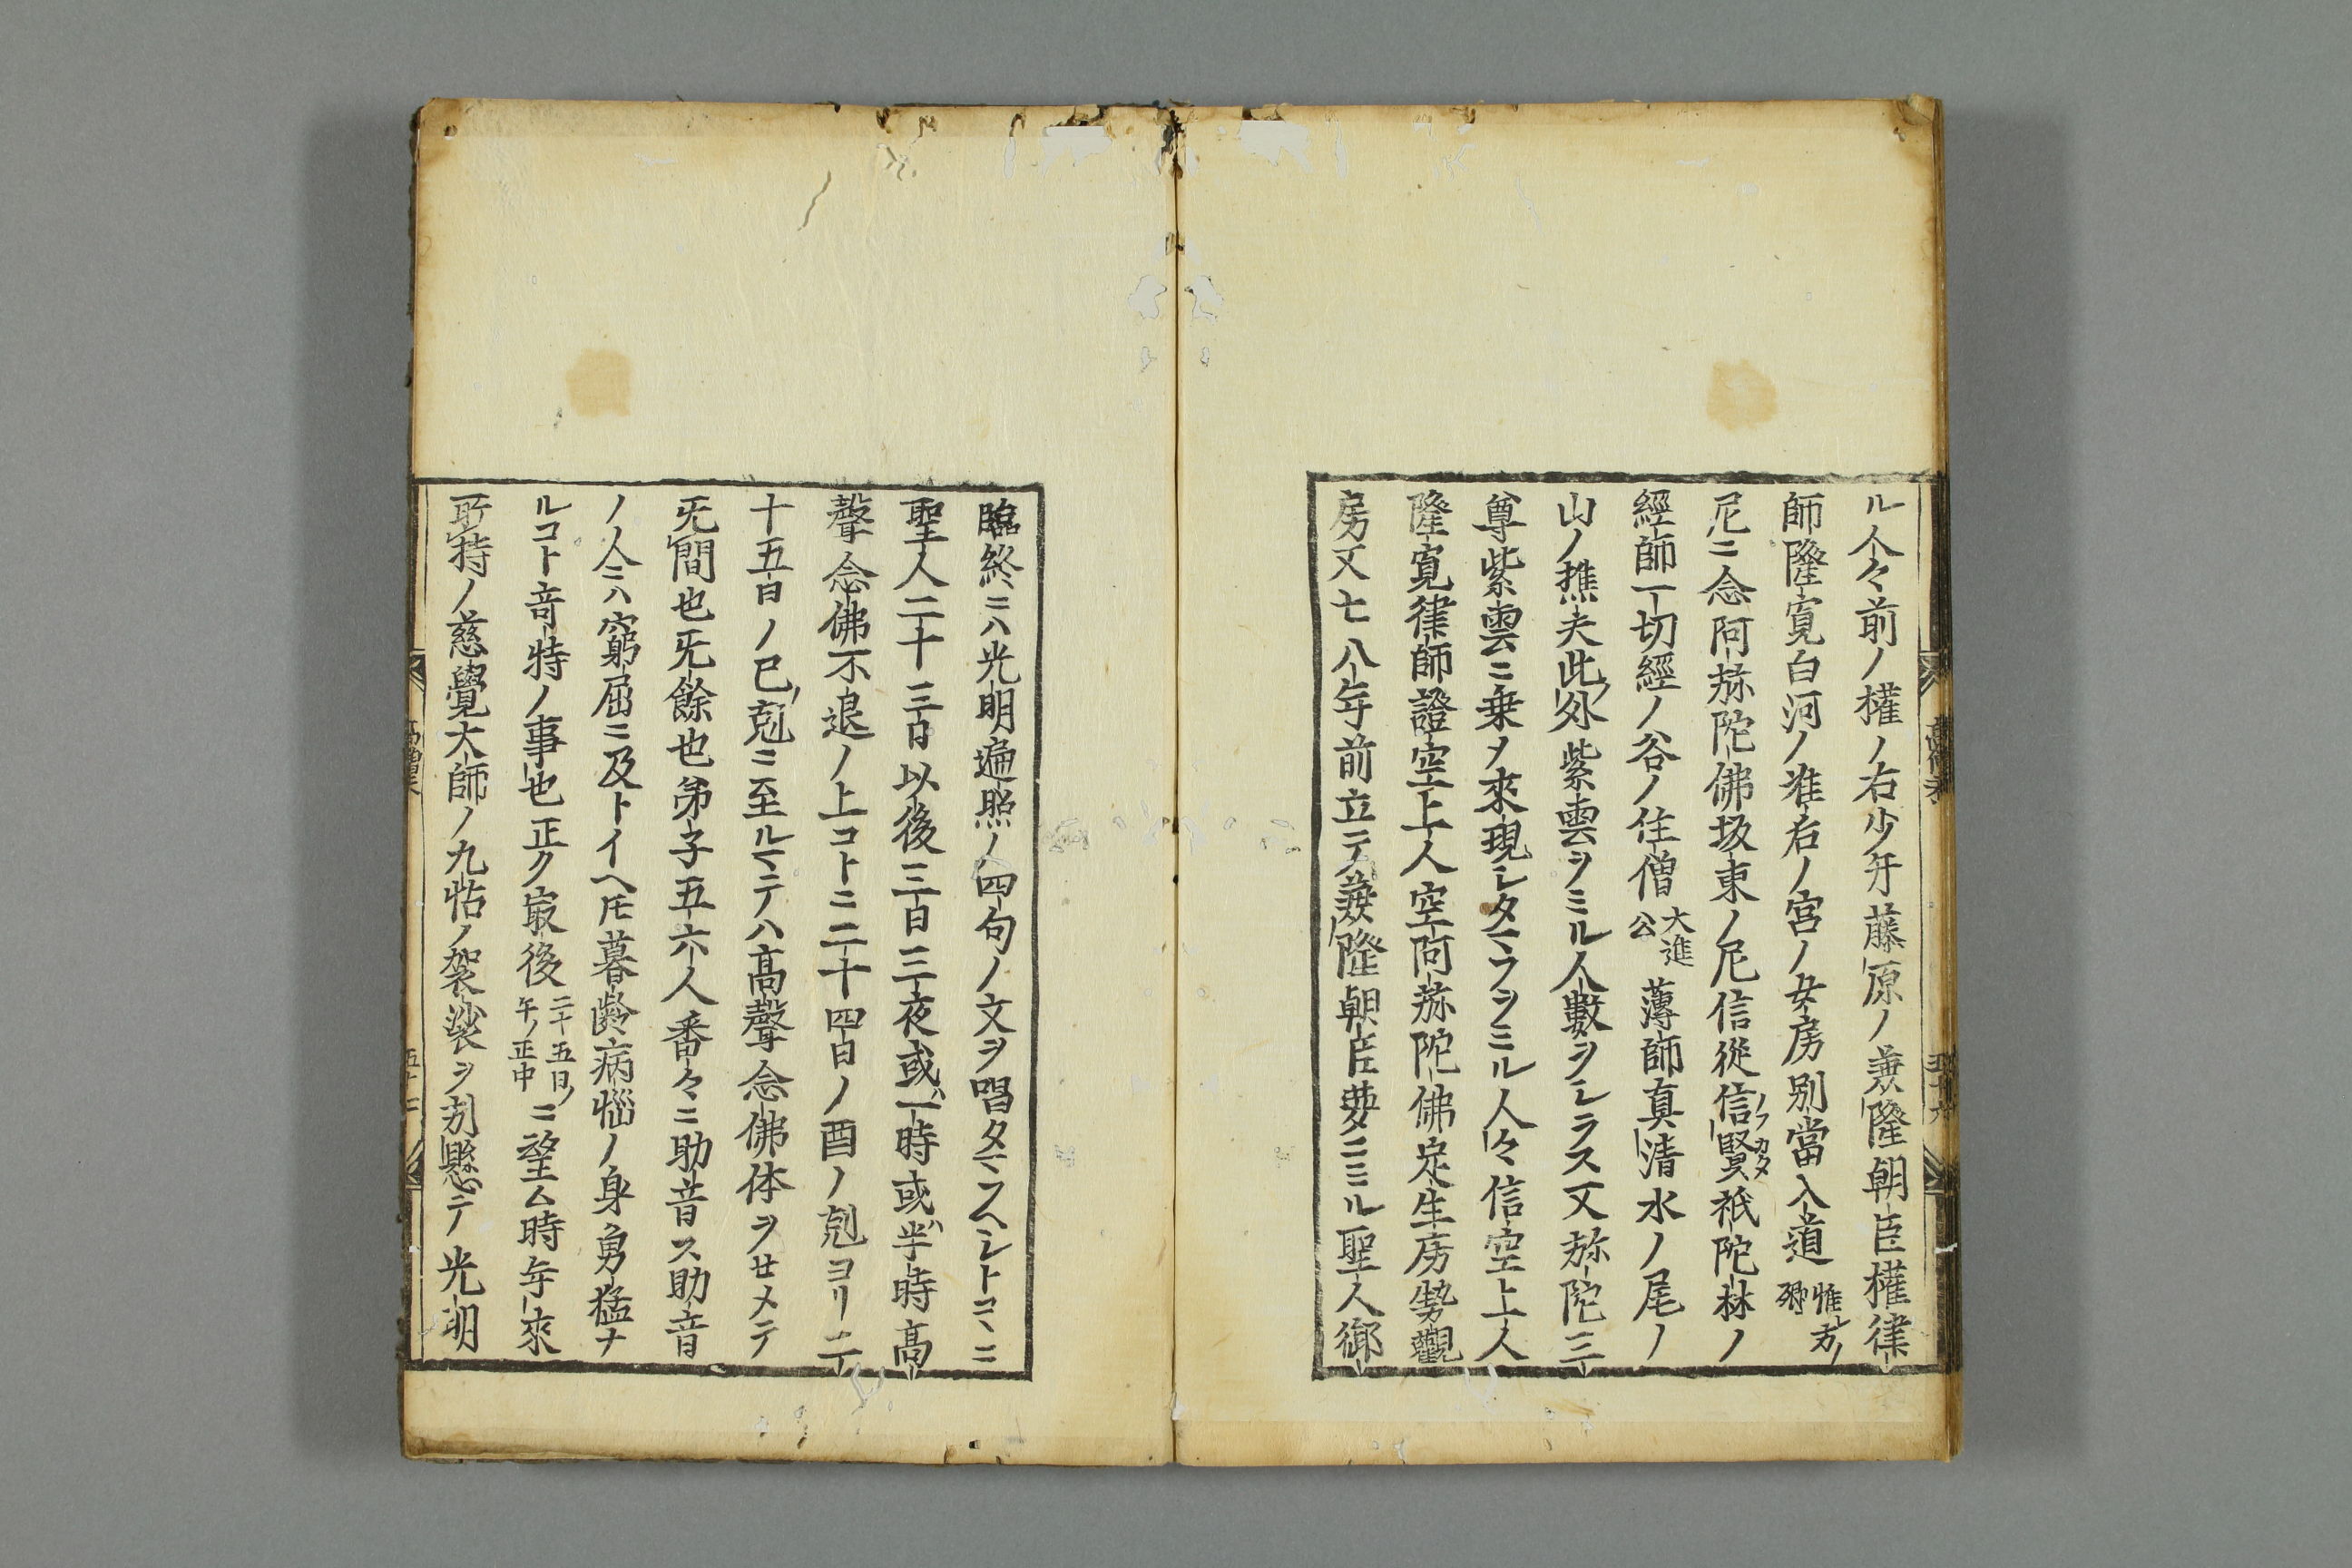 ル人々前ノ權ノ右少弁藤原ノ兼隆朝臣權律
師隆寛白河ノ准后ノ宮ノ女房別當入道
尼ニ念阿弥陀佛坂東ノ尼信從信賢祇陀林ノ
ノフカタ
經師一切經ノ谷ノ住僧大進公薄師真清水ノ尾ノ
山ノ樵夫此外紫雲ヲミル人數ヲシラス又弥陀三
尊紫雲ニ乗メ來現シタマフヲミル人々信空上人
隆寛律師證空上人空阿弥陀佛定生房勢觀
房又七八年前立テ兼隆朝臣夢ニミル聖人御
臨終ニハ光明遍照ノ四句ノ文ヲ唱タマフヘシトコヽニ
聖人二十三日以後三日三夜或ハ一時或ハ半時高
聲念佛不退ノ上コトニ二十四日ノ酉ノ剋ヨリ二
十五日ノ巳ノ剋ニ至ルマテハ高聲念佛体ヲせメテ
无間也无餘也弟子五六人番々ニ助音ス助音
ノ人ニハ窮屈ニ及トイヘトモ暮齡病惱ノ身勇猛ナ
ルコト奇特ノ事也正ク最後二十五日ノ午ノ正中ニ望ム時年來
所持ノ慈覺大師ノ九帖ノ袈裟ヲ懸テ光明